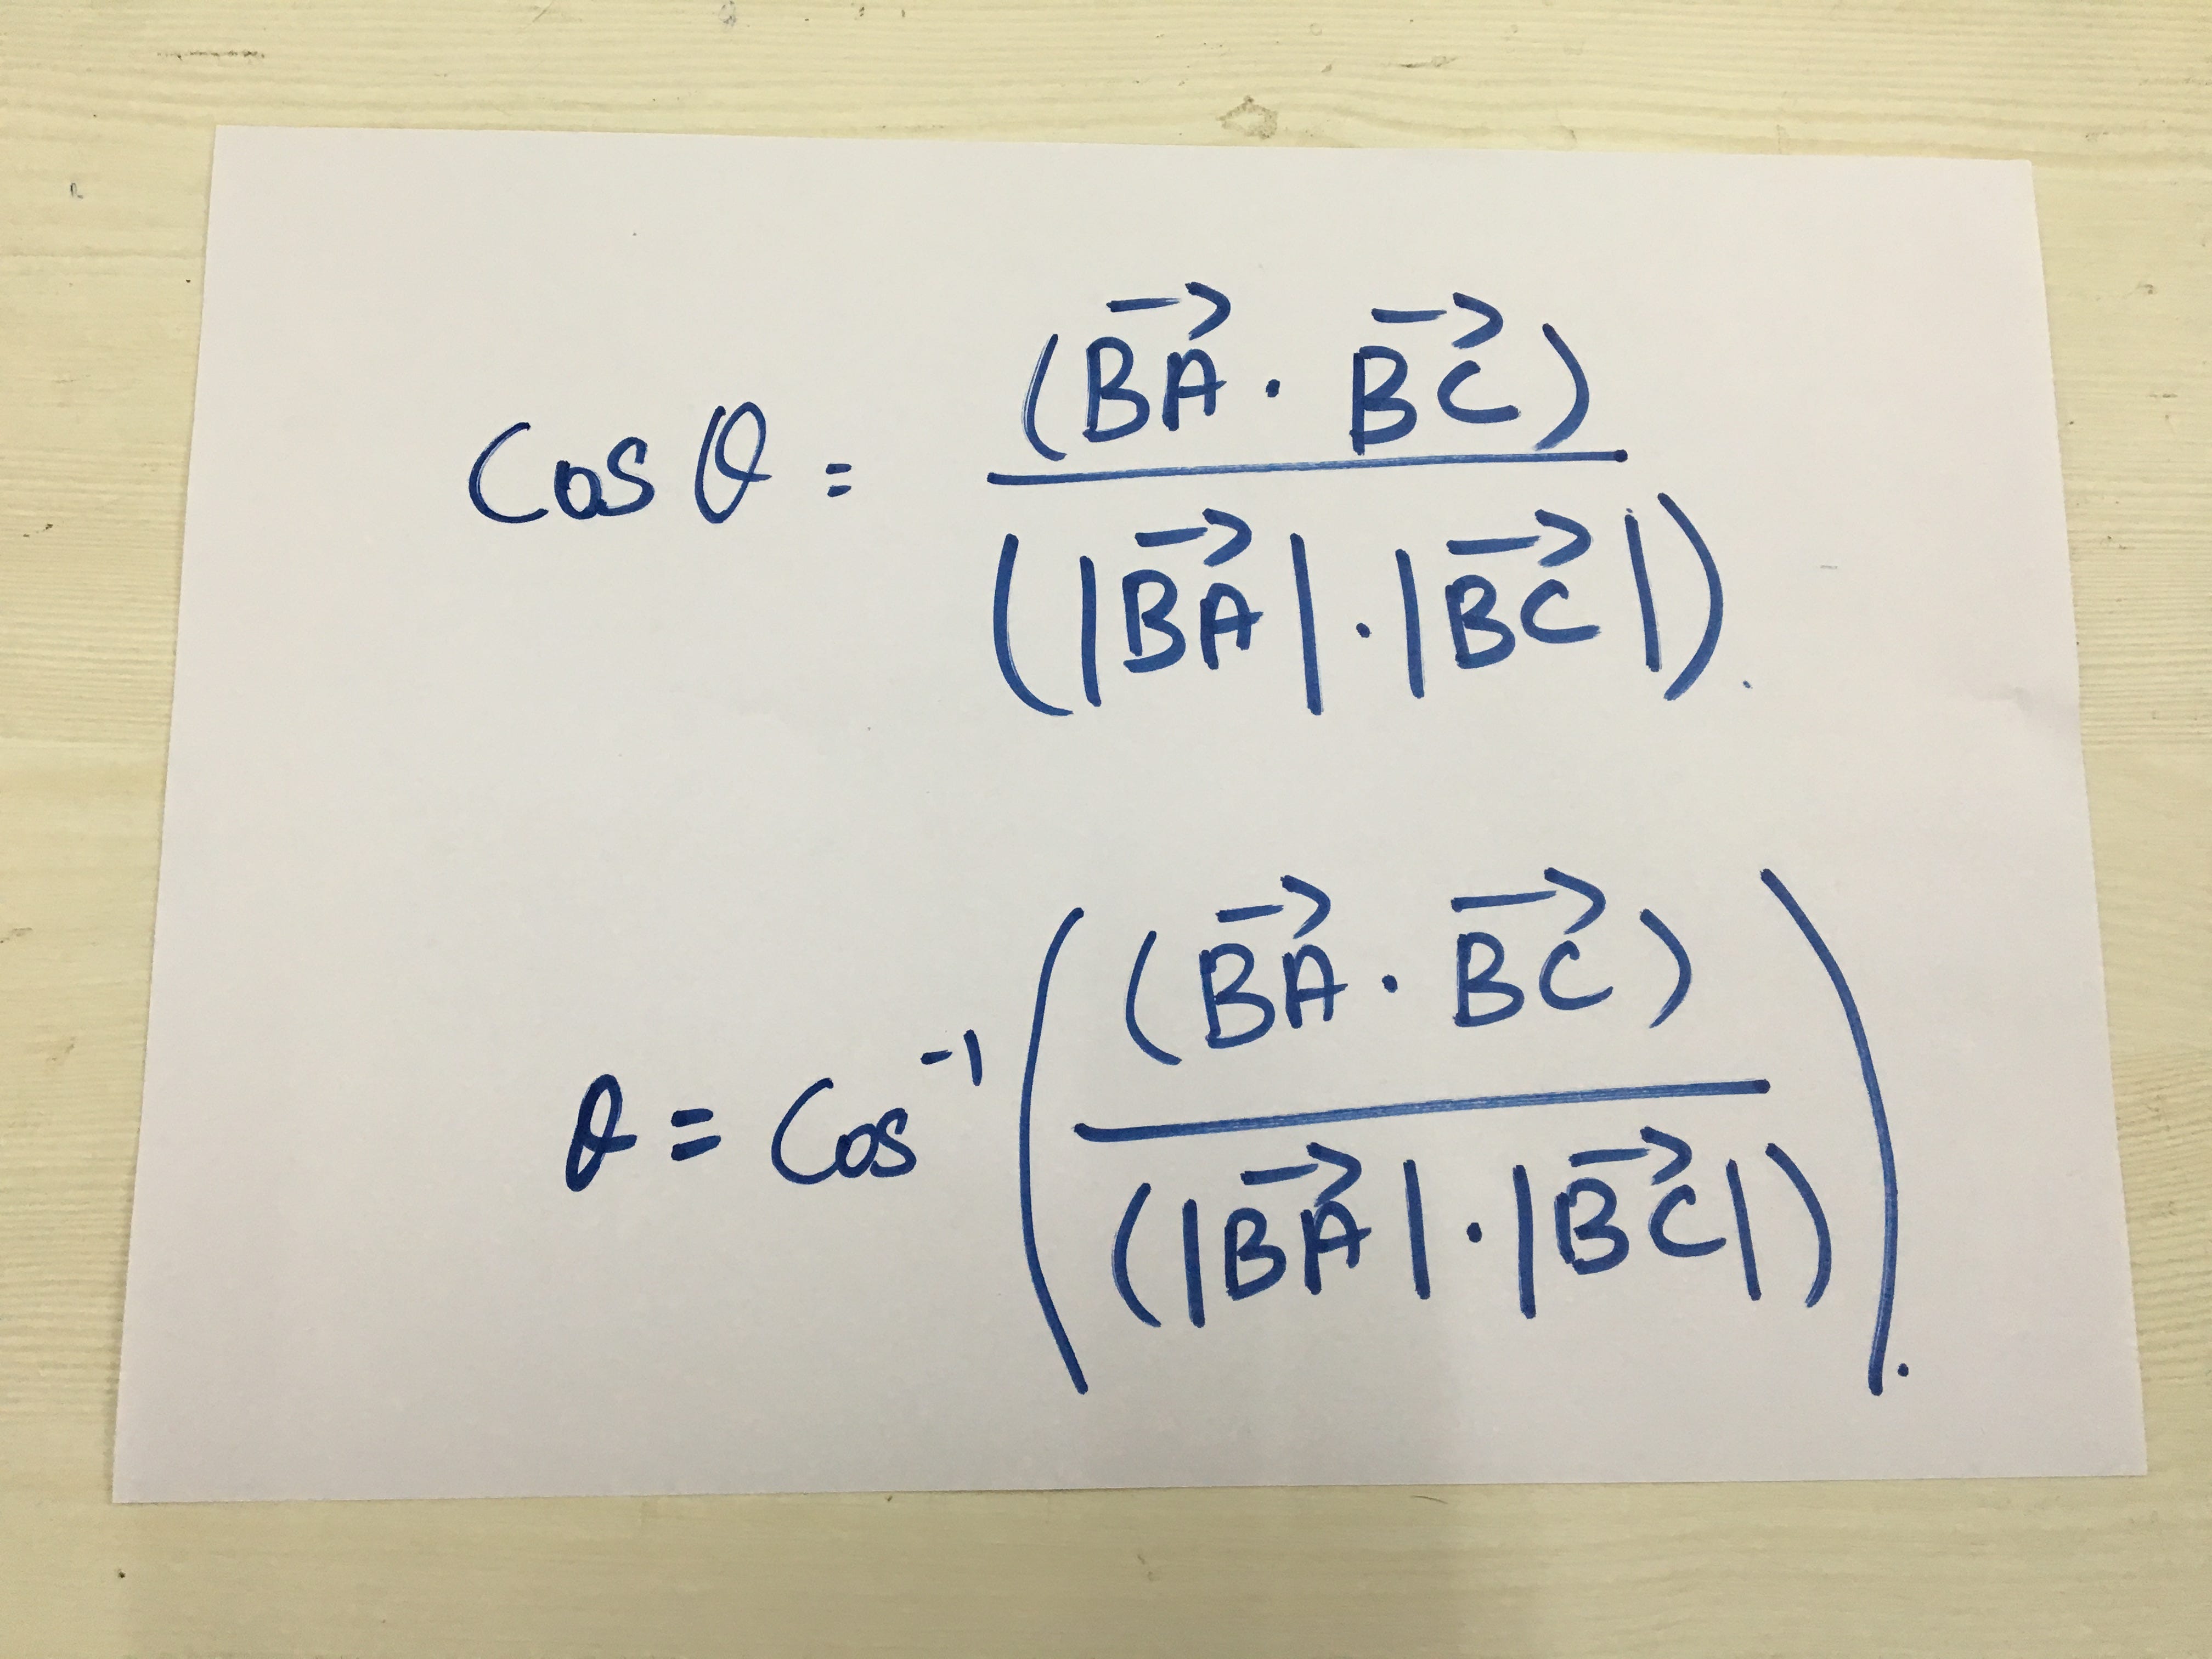 cos θ = (B⃗A⃗ · B⃗C⃗) / (|B⃗A⃗| · |B⃗C⃗|).
θ = cos⁻¹ ( (B⃗A⃗ · B⃗C⃗) / (|B⃗A⃗| · |B⃗C⃗|) ).